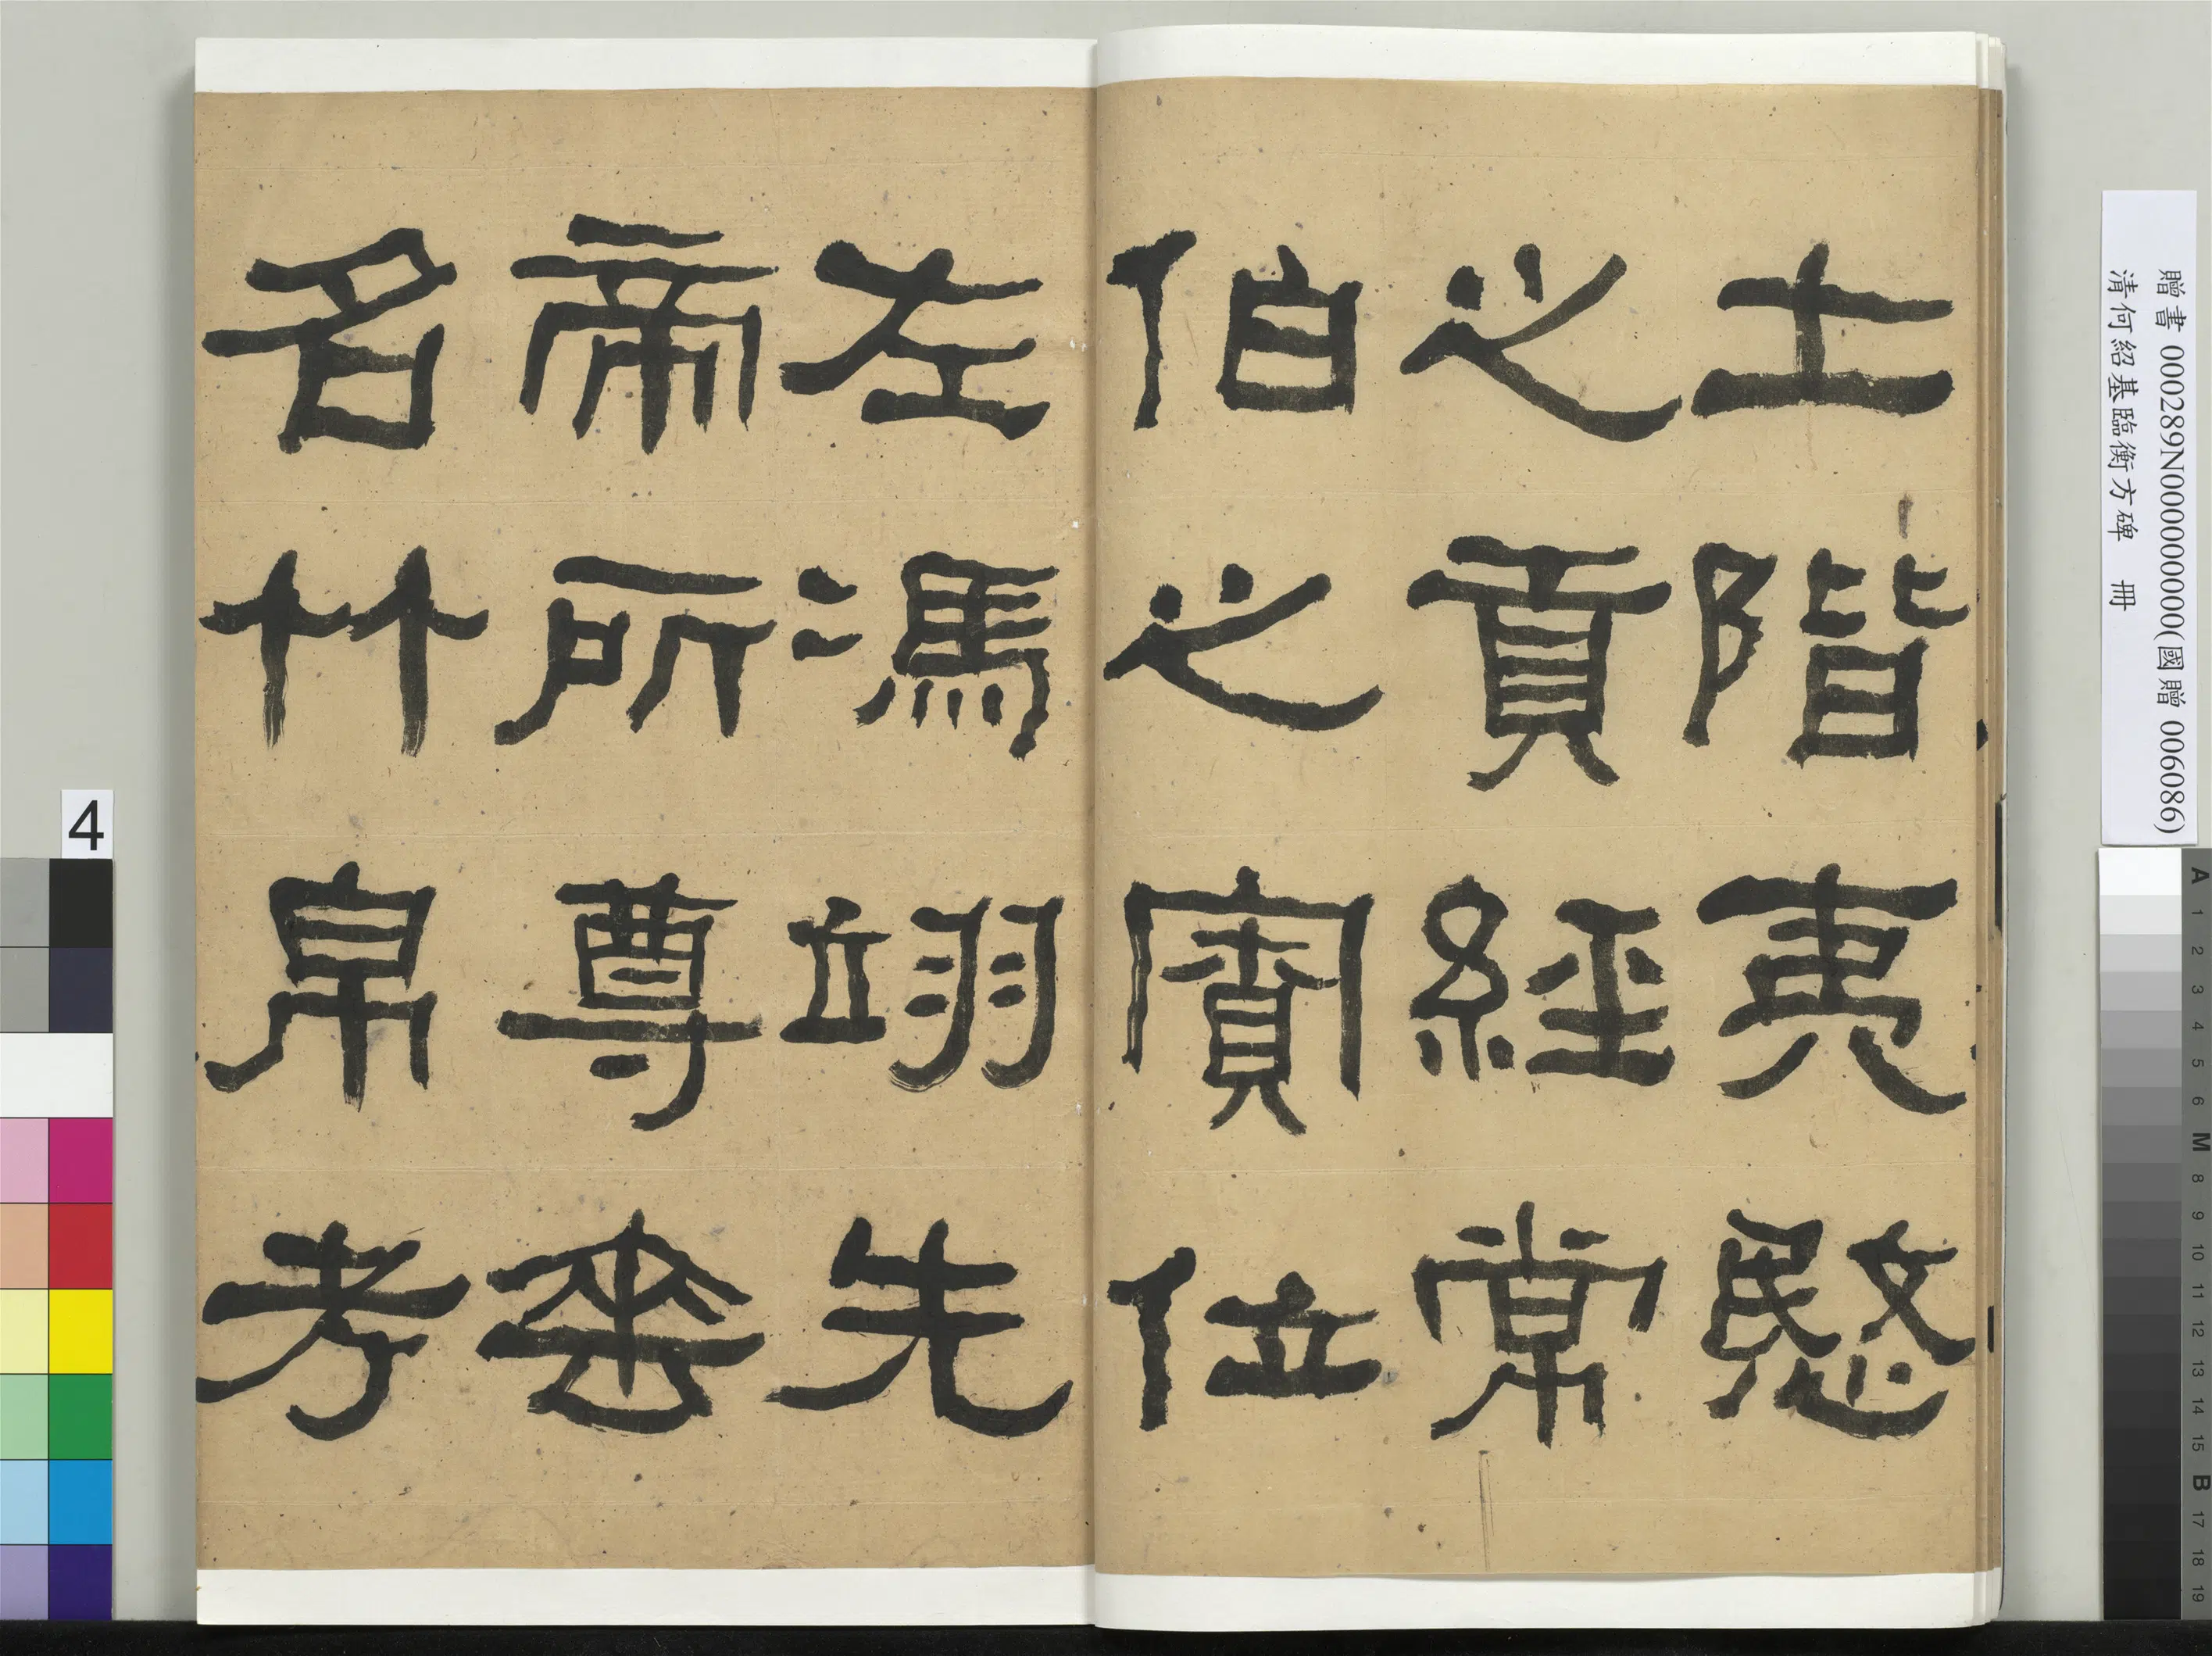 贈書 000289N000000000(國贈 006086)
清何紹基臨衡方碑 冊
土階夷愍
之貢經常
伯之寶位
左馮翊先
帝所尊垂
名竹帛考
4
A 1 2 3 4 5 6 M 8 9 10 11 12 13 14 15 B 17 18 19